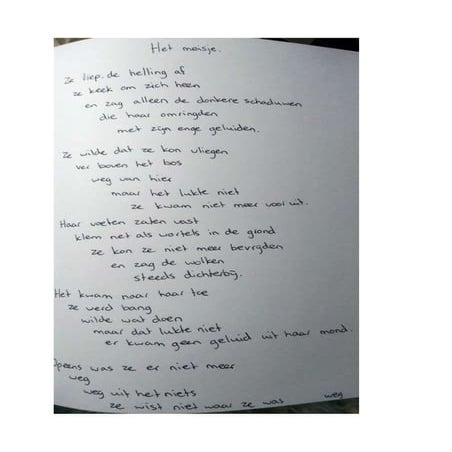 Het meisje.
Ze liep de helling af
ze keek om zich heen
en zag alleen de donkere schaduwen
die haar omringden
met zijn enge geluiden.
Ze wilde dat ze kon vliegen
ver boven het bos
weg van hier
maar het lukte niet
ze kwam niet meer vooruit.
Haar voeten zaten vast
klem net als wortels in de grond
ze kon ze niet meer bevrijden
en zag de wolken
steeds dichterbij.
Het kwam naar haar toe
ze werd bang
wilde wat doen
maar dat lukte niet
er kwam geen geluid uit haar mond.
Opeens was ze er niet meer
weg
weg uit het niets
ze wist niet waar ze was weg